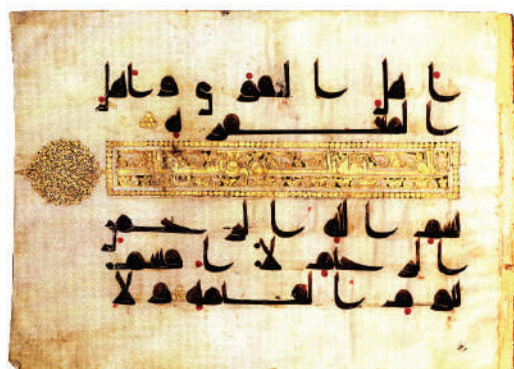 اهل التقوى واهل
المغفرة
بسم الله الرحمن
الرحيم لا اقسم
بيوم القيمة ولا